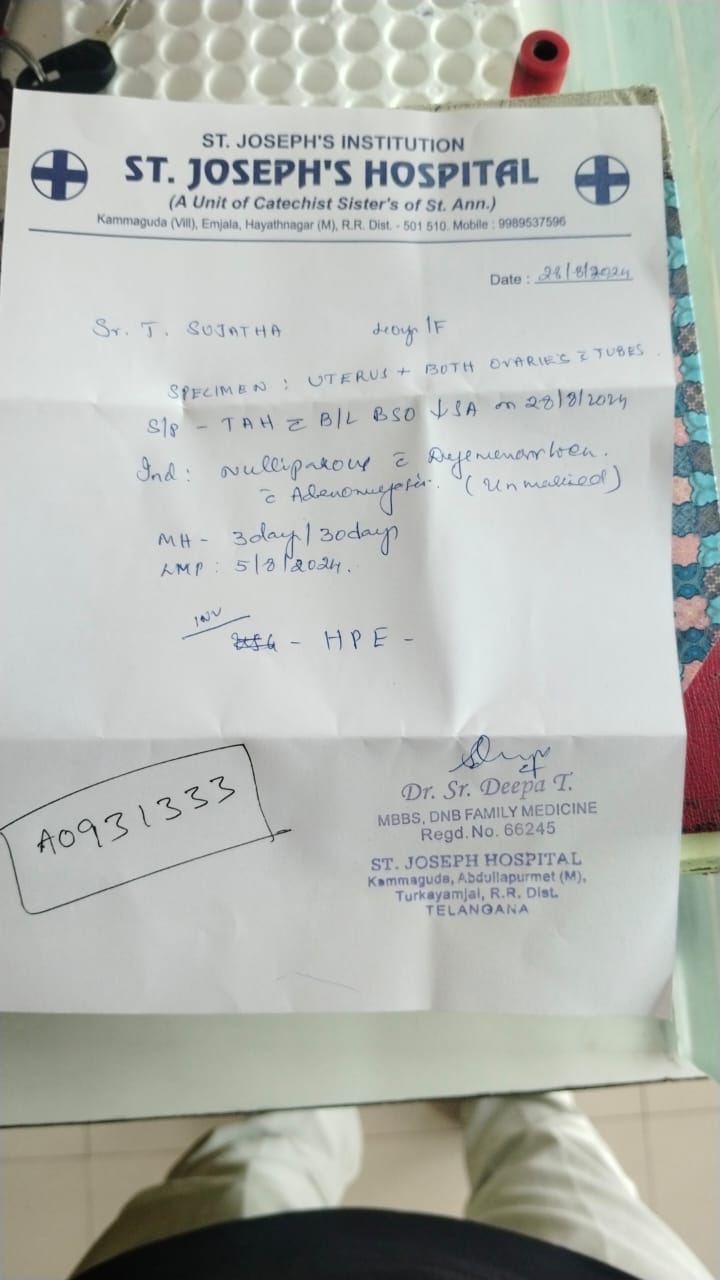 ST. JOSEPH'S INSTITUTION
ST. JOSEPH'S HOSPITAL
(A Unit of Catechist Sister's of St. Ann.)
Kammaguda (Vill), Emjala, Hayathnagar (M), R.R. Dist. - 501 510. Mobile : 9989537596
Date : 28/8/2024
Sr. T. SUJATHA /F
SPECIMEN : UTERUS + BOTH OVARIE'S c̄ TUBES.
S/p - TAH c̄ B/L BSO ↓ SA on 28/8/2024
Ind : Nulliparous c̄ Dysmenorrhoea.
c̄ Adenomyosis. (Unmarried)
MH - 3days/30days
LMP : 5/8/2024.
INV
- HPE -
A0931333
Dr. Sr. Deepa T.
MBBS, DNB FAMILY MEDICINE
Regd. No. 66245
ST. JOSEPH HOSPITAL
Kammaguda, Abdullapurmet (M),
Turkayamjal, R.R. Dist.
TELANGANA